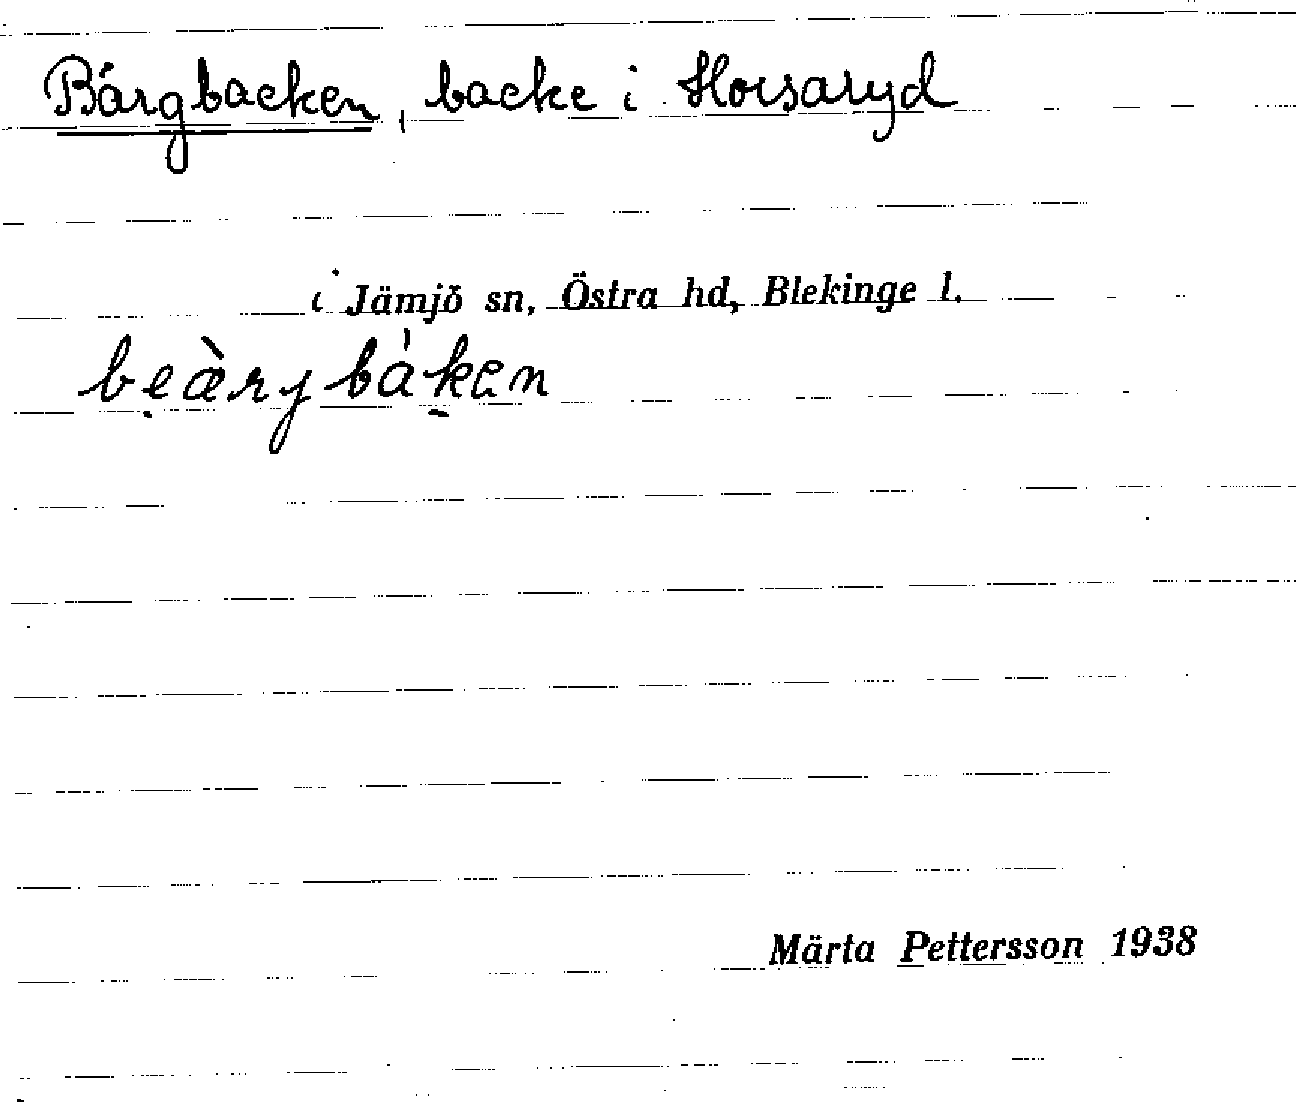 Bärgbacken, backe i Horsaryd
i Jämjö sn, Östra hd, Blekinge l.
beæ̀rybákan
Märta Pettersson 1938